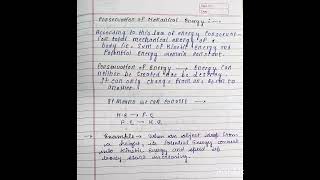 Conservation of Mechanical Energy :-
According to this law of energy conservat-
ion total mechanical energy of a
body i.e. sum of kinetic energy and
Potential energy remain constant.
Conservation of Energy → Energy can
neither be created nor be destroy.
It can only change from one form to
another.
It means we can convert
K.E → P.E
P.E → K.E
→ Example → When an object drop from
a height, its potential Energy convert
into kinetic Energy and speed of
body start increasing.